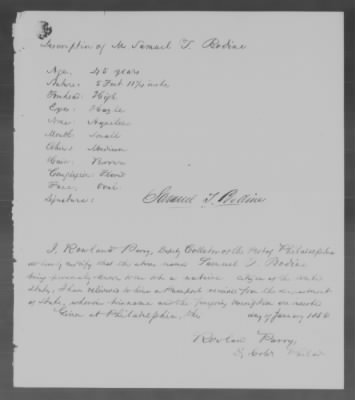 Description of Mr Samuel T. Bodine
Age, 45 years
Stature, 5 Feet 11 1/4 inches
Forehead: High
Eyes: Hazle
Nose: Aquiline
Mouth: Small
Chin: Medium
Hair: Brown
Complexion:
Face, Oval
Signature: Samuel T. Bodine
I, Rowland Parry, Deputy Collector of the Port of Philadelphia
do hereby certify that the above named Samuel T. Bodine
being personally known to me as a native citizen of the United
States, I have delivered to him a Passport received from the Department
of State, wherein his name and the foregoing description are inserted
Given at Philadelphia, the day of January 188
Rowland Parry,
Dy Coltr